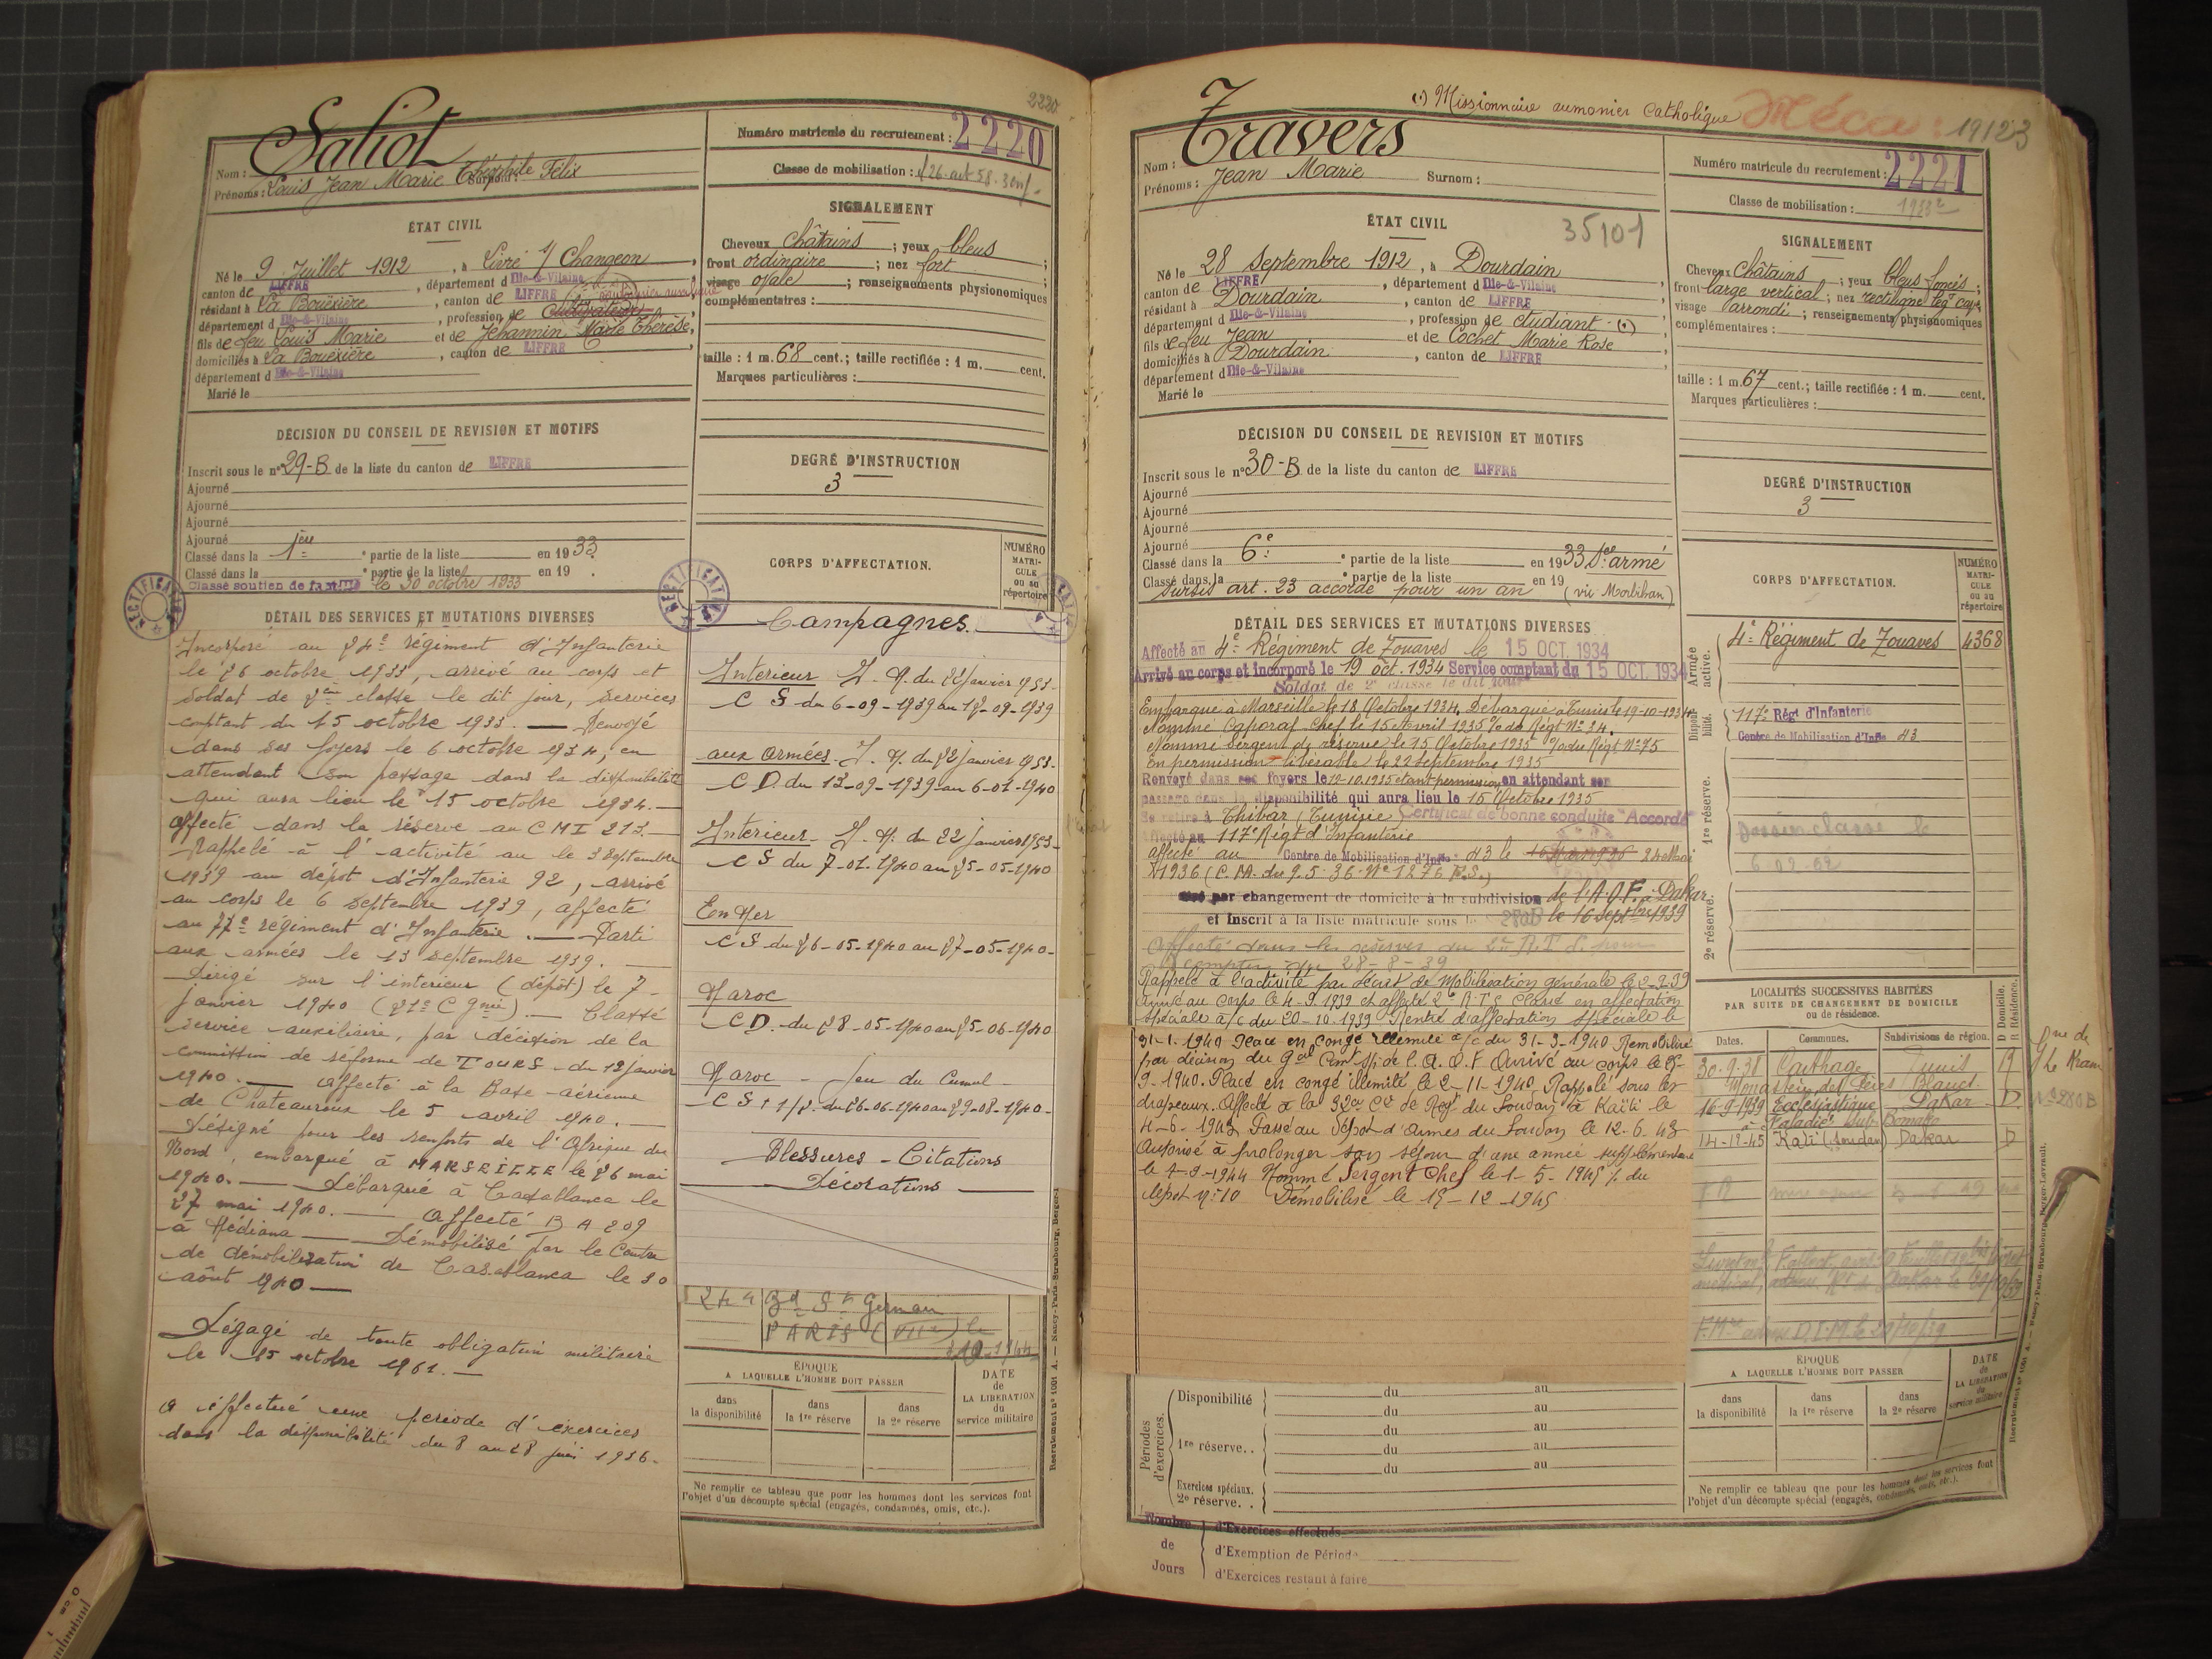 2220
Saliot
Nom :
Prénoms : Louis Jean Marie Théophile Félix
Surnom :
Numéro matricule du recrutement : 2220
Classe de mobilisation :
ÉTAT CIVIL
Né le 9 Juillet 1912, à Livré s/ Changeon,
canton de LIFFRÉ, département d Ille-&-Vilaine
résidant à La Bouëxière, canton de LIFFRÉ
département d Ille-&-Vilaine, profession de Cultivateur
fils de feu Louis Marie et de Jehannin Marie Thérèse,
domiciliés à La Bouëxière, canton de LIFFRÉ
département d Ille-&-Vilaine
Marié le
SIGNALEMENT
Cheveux châtains ; yeux bleus
front ordinaire ; nez fort ;
visage ovale ; renseignements physionomiques
complémentaires :
taille : 1 m. 68 cent.; taille rectifiée : 1 m. cent.
Marques particulières :
DÉCISION DU CONSEIL DE REVISION ET MOTIFS
Inscrit sous le n° 29-B de la liste du canton de LIFFRÉ
Ajourné
Ajourné
Ajourné
Ajourné
Classé dans la 1ère partie de la liste en 1933.
Classé dans la e partie de la liste en 19 .
Classé soutien de famille le 30 octobre 1933
DEGRÉ D'INSTRUCTION
3
CORPS D'AFFECTATION.
NUMÉRO
MATRI-
CULE
ou au
répertoire
DÉTAIL DES SERVICES ET MUTATIONS DIVERSES
Incorporé au 24e régiment d'Infanterie
le 26 octobre 1933, arrivé au corps et
soldat de 2ème classe le dit jour, services
comptant du 15 octobre 1933. — Renvoyé
dans ses foyers le 6 octobre 1934, en
attendant son passage dans la disponibilité
qui aura lieu le 15 octobre 1934. —
Affecté dans la réserve au C M I 213. —
Rappelé à l'activité au le 3 septembre
1939 au dépôt d'Infanterie 92, arrivé
au corps le 6 septembre 1939, affecté
au 77e régiment d'Infanterie. — Parti
aux armées le 13 septembre 1939. —
Dirigé sur l'intérieur (dépôt) le 7
janvier 1940 (21e Cgnie) — Classé
service auxiliaire, par décision de la
commission de réforme de TOURS du 12 janvier
1940. — Affecté à la Base aérienne
de Chateauroux le 5 avril 1940. —
Désigné pour les renforts de l'Afrique du
Nord, embarqué à MARSEILLE le 26 mai
1940. — Débarqué à Casablanca le
27 mai 1940. — Affecté B A 209
à Médiana — Démobilisé par le Centre
de démobilisation de Casablanca le 30
août 1940 —
Dégagé de toute obligation militaire
le 15 octobre 1961. —
A effectué une période d'exercices
dans la disponibilité du 8 au 28 juin 1936.
RECTIFICATION
Campagnes.
Intérieur J. M. du 22 janvier 1953.
C S du 6-09-1939 au 12-09-1939
aux armées. J. M. du 22 janvier 1953.
C D. du 13-09-1939 au 6-01-1940
Intérieur J. M. du 22 janvier 1953
C S du 7-01-1940 au 25-05-1940
En Mer
C S du 26-05-1940 au 27-05-1940
Maroc
C D. du 28-05-1940 au 25-06-1940
Maroc - Jeu du Cumul -
C S + 1/2. du 26-06-1940 au 29-08-1940
Blessures - Citations
Décorations
244 Bd St Germain
PARIS (VIIe) le
ÉPOQUE
A LAQUELLE L'HOMME DOIT PASSER
dans
la disponibilité
dans
la 1re réserve
dans
la 2e réserve
DATE
de
LA LIBÉRATION
du
service militaire
Ne remplir ce tableau que pour les hommes dont les services font
l'objet d'un décompte spécial (engagés, condamnés, omis, etc.).
(.) Missionnaire aumonier Catholique
Méca : 19123
Travers
Nom :
Prénoms : Jean Marie
Surnom :
Numéro matricule du recrutement : 2221
Classe de mobilisation :
ÉTAT CIVIL
35101
Né le 28 Septembre 1912, à Dourdain
canton de LIFFRÉ, département d Ille-&-Vilaine
résidant à Dourdain, canton de LIFFRÉ
département d Ille-&-Vilaine, profession de étudiant (.)
fils de feu Jean et de Cochet Marie Rose
domiciliés à Dourdain, canton de LIFFRÉ
département d Ille-&-Vilaine
Marié le
SIGNALEMENT
Cheveux châtains ; yeux bleus foncés ;
front large vertical ; nez rectiligne
visage arrondi ; renseignements physionomiques
complémentaires :
taille : 1 m. 67 cent.; taille rectifiée : 1 m. cent.
Marques particulières :
DÉCISION DU CONSEIL DE REVISION ET MOTIFS
Inscrit sous le n° 30-B de la liste du canton de LIFFRÉ
Ajourné
Ajourné
Ajourné
Ajourné
Classé dans la 6e partie de la liste en 1933 Sce armé
Classé dans la e partie de la liste en 19
Sursis art. 23 accordé pour un an (vu Morbihan)
DEGRÉ D'INSTRUCTION
3
CORPS D'AFFECTATION.
NUMÉRO
MATRI-
CULE
ou au
répertoire
Armée
active.
4e Régiment de Zouaves 4368
Disponi-
bilité.
117e Régt d'Infanterie
Centre de Mobilisation d'Infie 43
1re réserve.
2e réserve.
DÉTAIL DES SERVICES ET MUTATIONS DIVERSES
Affecté au 4e Régiment de Zouaves le 15 OCT. 1934
Arrivé au corps et incorporé le 19 oct. 1934 Service comptant du 15 OCT. 1934
Soldat de 2e classe le dit jour
Embarqué à Marseille le 18 Octobre 1934. Débarqué à Tunis le 19-10-1934
Nommé Caporal Chef le 15 Avril 1935 % do Régt N° 34.
Nommé Sergent de réserve le 15 Octobre 1935 % du Régt N° 75
En permission libérable le 22 septembre 1935
Renvoyé dans ses foyers le 12-10-1935 étant permission en attendant son
passage dans la disponibilité qui aura lieu le 15 Octobre 1935
Se retire à Thibar (Tunisie) Certificat de bonne conduite "Accordé"
Affecté au 117e Régt d'Infanterie
Affecté au Centre de Mobilisation d'Infie 43 le
1936 (C.M. du 9.5.36 N° 1276 E.S.)
par changement de domicile à la subdivision de l'A.O.F. à Dakar
et inscrit à la liste matricule sous le 280B le 16 septbre 1939
Affecté dans les réserves du 2e R.T.S. pour
compter du 28-8-39
Rappelé à l'activité par décret de Mobilisation générale le 2-9-39
Arrivé au Corps le 4-9-1939 et affecté 2e R.T.S. Classé en affectation
spéciale a/c du 20-10-1939 Rentré d'affectation spéciale le
31-1-1940 Placé en congé illimité a/c du 31-3-1940 Remobilisé
par décision du Gal Cmt Sp. de l'A.O.F Arrivé au corps le
9-1940. Placé en congé illimité le 2-11-1940 Rappelé sous les
drapeaux. Affecté à la 32e Cie de Regt du Soudan à Kati le
4-6-1943 Passé au Dépôt d'Armes du Soudan le 12-6-43
Autorisé à prolonger son séjour d'une année supplémentaire
le 4-9-1944 Nommé Sergent Chef le 1-5-1945 % du
dépôt n° 10 Démobilisé le 15-12-1945
LOCALITÉS SUCCESSIVES HABITÉES
PAR SUITE DE CHANGEMENT DE DOMICILE
ou de résidence.
Dates.
Communes.
Subdivisions de région.
D Domicile.
R Résidence.
30-9-38 Carthage Tunis R
Monastère des Pères Blancs
16-9-1939 Ecclésiastique Dakar D
à Faladié sub. Bamako
14-12-45 Kati (Soudan) Dakar D
N° 280B
ÉPOQUE
A LAQUELLE L'HOMME DOIT PASSER
dans
la disponibilité
dans
la 1re réserve
dans
la 2e réserve
DATE
de
LA LIBÉRATION
du
service militaire
Ne remplir ce tableau que pour les hommes dont les services font
l'objet d'un décompte spécial (engagés, condamnés, omis, etc.).
Périodes
d'exercices.
Disponibilité du au
du au
1re réserve. . du au
du au
du au
Exercices spéciaux.
2e réserve. .
Nombre
de
Jours
d'Exercices effectués
d'Exemption de Période
d'Exercices restant à faire